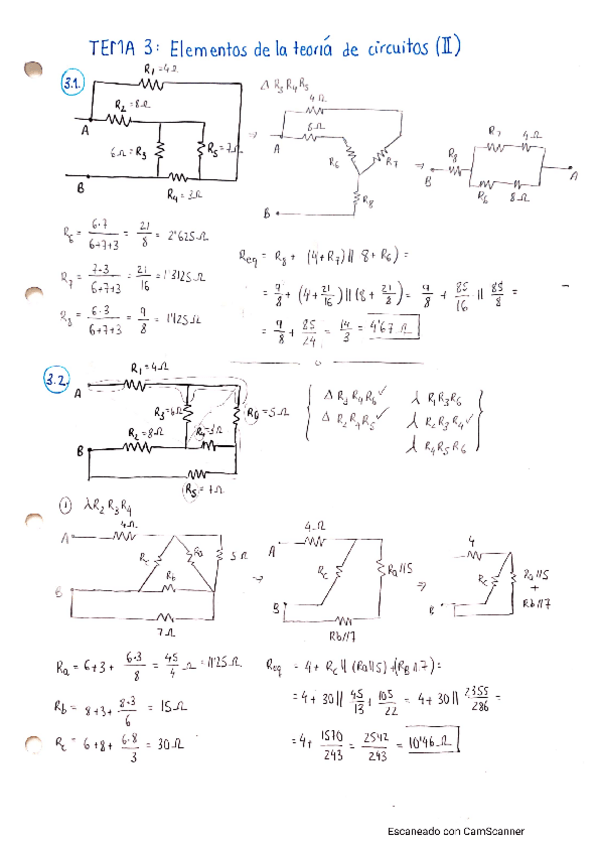 TEMA 3: Elementos de la teoría de circuitos (II)
3.1.
R1 = 4Ω
R2 = 8Ω
A
6Ω = R3
R5 = 7Ω
B
R4 = 3Ω
Δ R3 R4 R5
4Ω
8Ω
A
R6
R7
R8
B
R7
4Ω
R8
B
A
R6
8Ω
R6 = 6·7 / 6+7+3 = 21/8 = 2'625 Ω
R7 = 7·3 / 6+7+3 = 21/16 = 1'3125 Ω
R8 = 6·3 / 6+7+3 = 9/8 = 1'125 Ω
Req = R8 + (4+R7) || 8+R6) =
= 9/8 + (4 + 21/16) || (8 + 21/8) = 9/8 + 85/16 || 85/8 =
= 9/8 + 85/24 = 14/3 = 4'67 Ω
3.2.
R1 = 4Ω
A
R3 = 6Ω
R6 = 5Ω
R2 = 8Ω
R4 = 3Ω
B
R5 = 7Ω
R1 R3 R6
R2 R3 R4 ✓
R4 R5 R6
① λ R2 R3 R4
4Ω
A
Rc
Ra
5Ω
Rb
B
7Ω
4Ω
A
Rc
Ra||5
B
Rb||7
4
Rc
Ra||5
+
Rb||7
B
Ra = 6+3+ 6·3/8 = 45/4 Ω = 11'25 Ω
Rb = 8+3+ 8·3/6 = 15 Ω
Rc = 6+8+ 6·8/3 = 30 Ω
Req = 4 + Rc || (Ra||5) + (Rb||7) =
= 4 + 30 || 45/13 + 105/22 = 4 + 30 || 2355/286 =
= 4 + 1570/243 = 2542/243 = 10'46 Ω
Escaneado con CamScanner